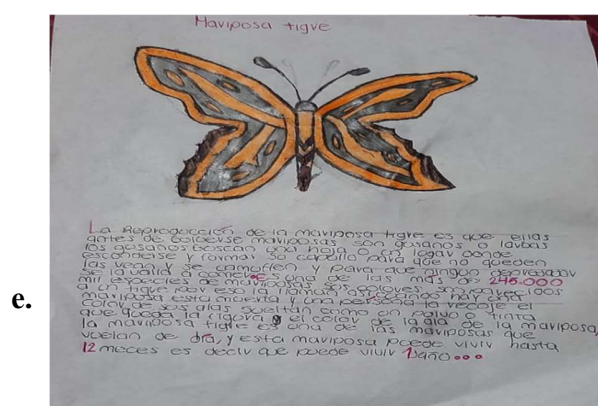 Mariposa tigre
La Reproducción de la mariposa tigre es que ellas
antes de bolberse mariposas son gusanos o larbas
los gusanos buscan una hoja o un lugar donde
esconderse y formar su capullo para que no queden
las vean y se camuflen y para que ningun depredador
se la valla a comer es una de las mas de 245.000
mil especies de mariposas sus colores son parecidos
a un tigre y por eso la llaman asi, cuando
mariposa esta muerta y una persona la recoje el
color de sus alas sueltan como un polvo o tinta
que queda la figura y el color de la ala de la mariposa,
la mariposa tigre es una de las mariposas que
vuelan de dia, y esta mariposa puede vivir hasta
12 meces es decir que puede vivir 1 año...
e.